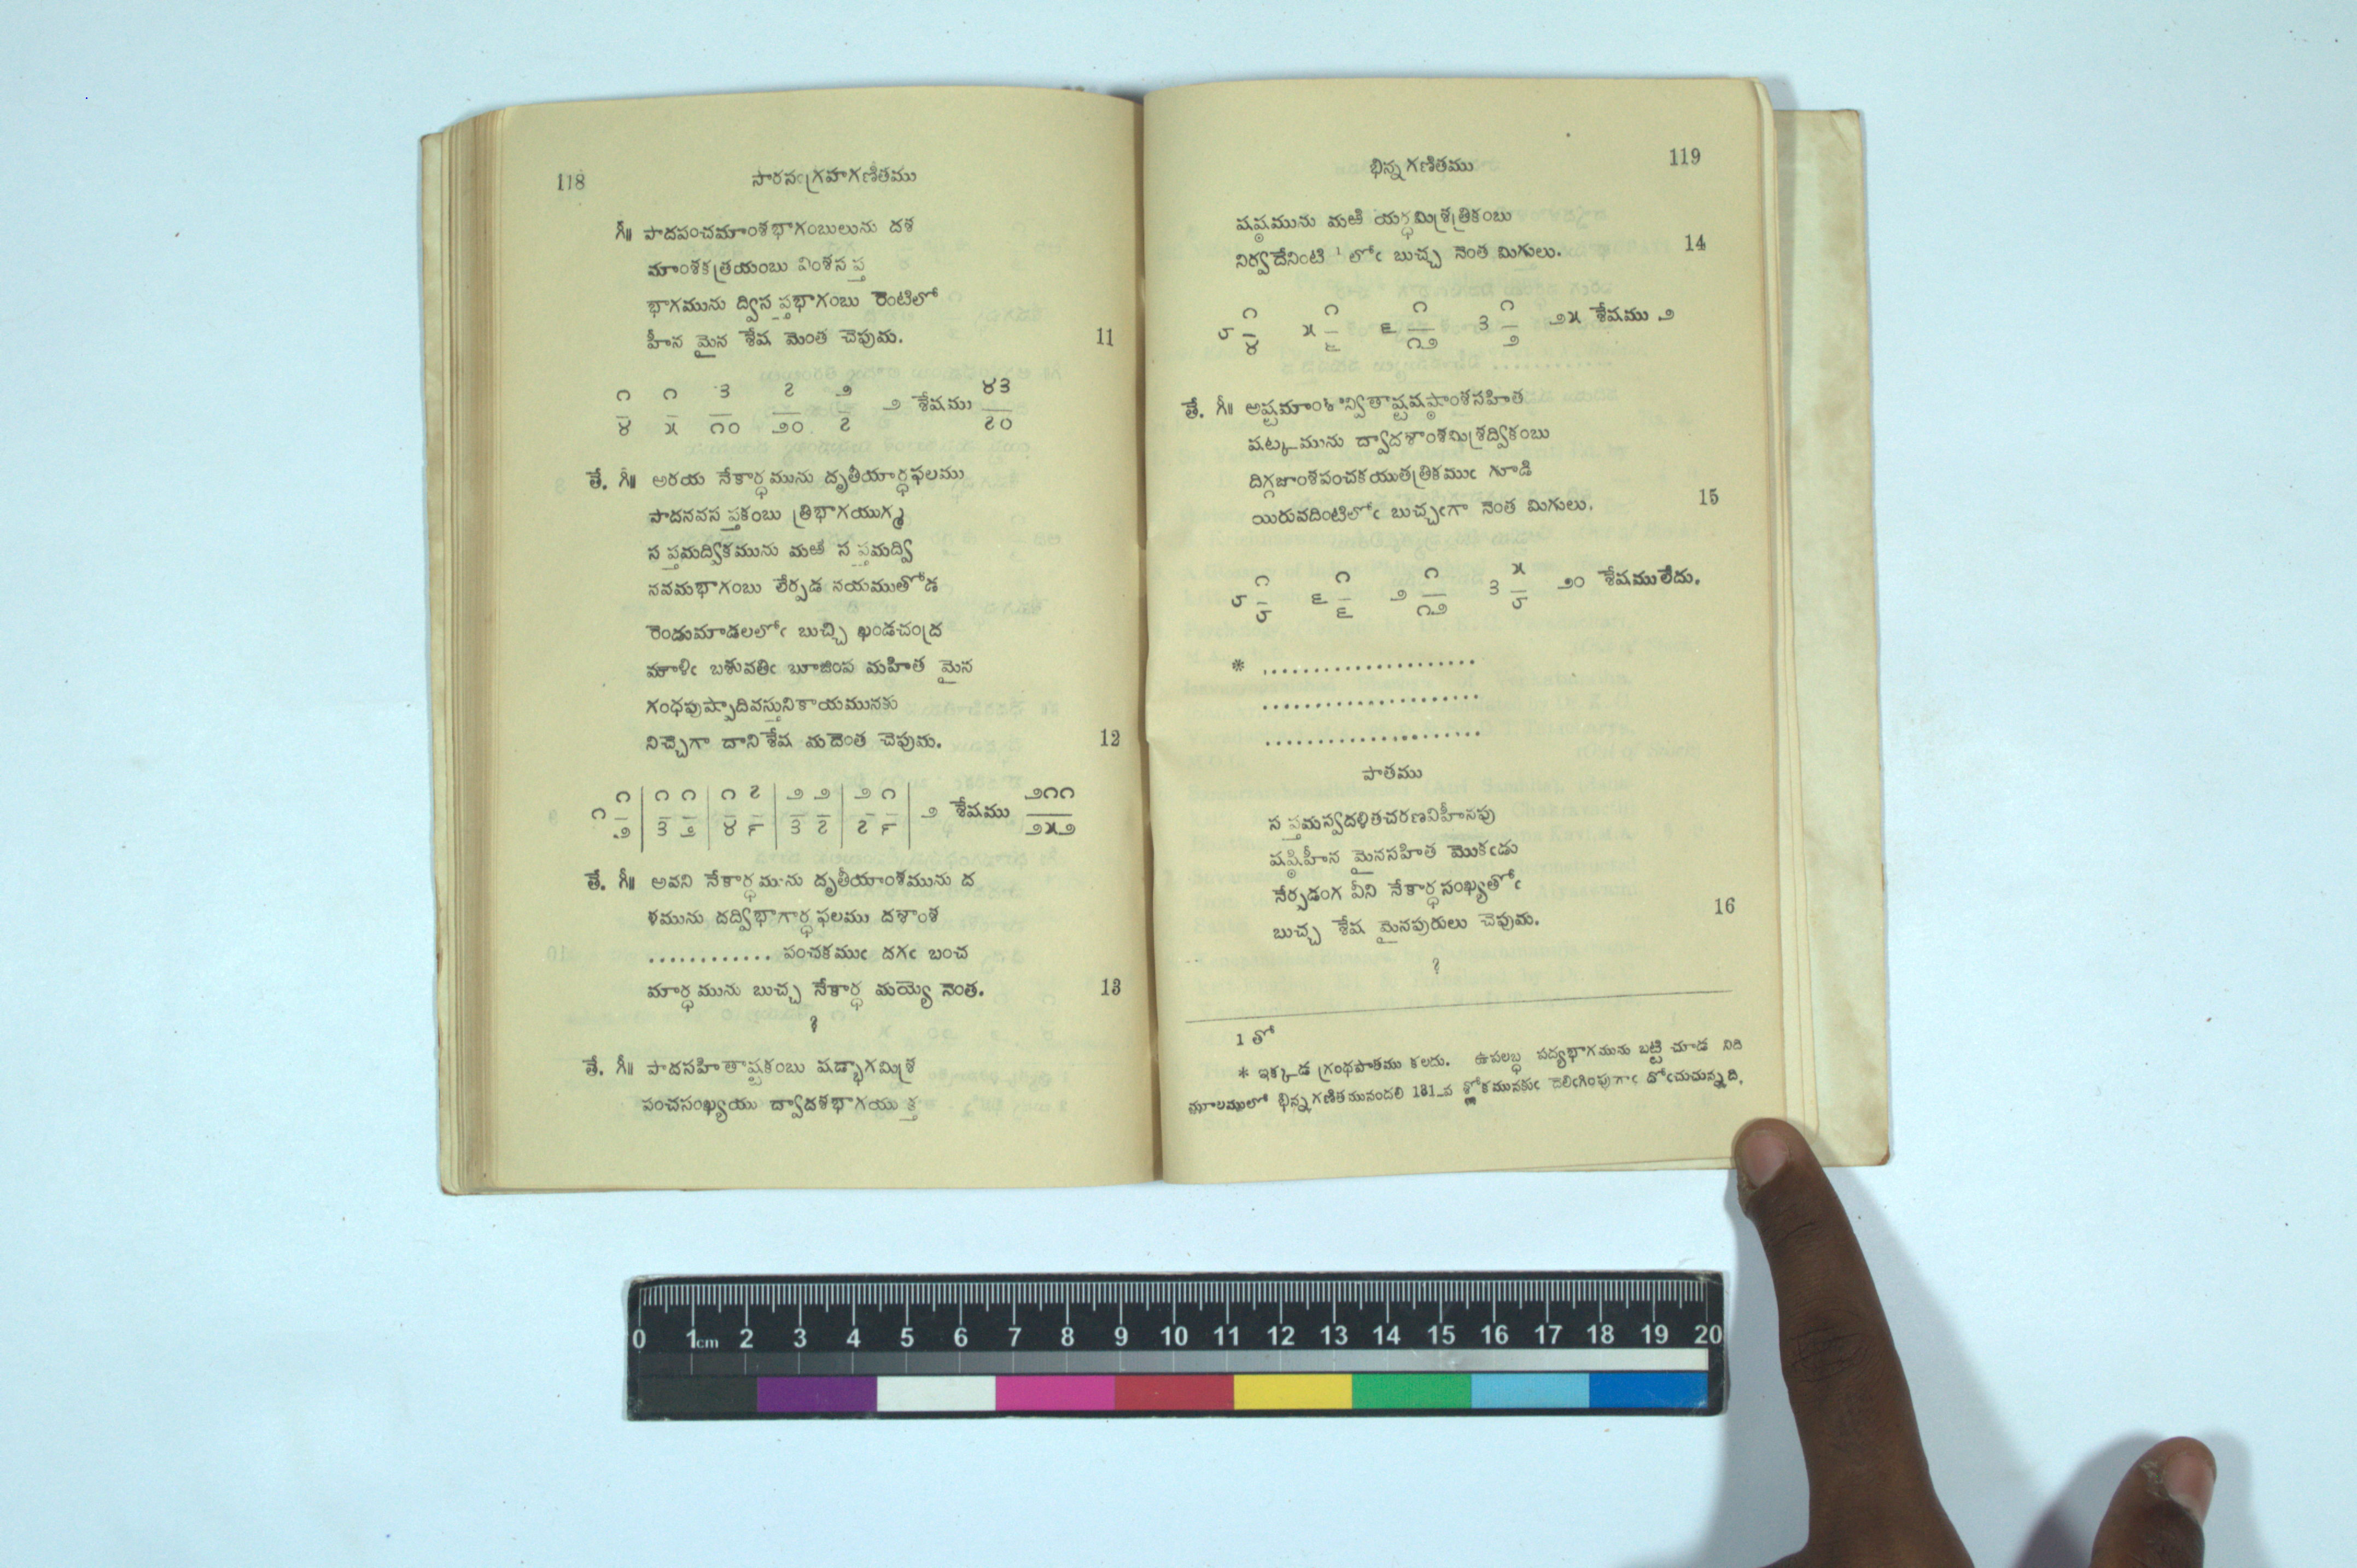 118
సారసంగ్రహగణితము
గీ॥ పాదపంచమాంశభాగంబులును దశ
మాంశకత్రయంబు వింశసప్త
భాగమును ద్విసప్తభాగంబు రెంటిలో
హీన మైన శేష మెంత చెపుమ. 11
౧ ౧ ౩ ౭ ౨ ౨ శేషము ౪౩
౪ ౫ ౧౦ ౨౦ ౭ ౭౦
తే. గీ॥ అరయ నేకార్ధమును దృతీయార్ధఫలము
పాదనవసప్తకంబు త్రిభాగయుగ్మ
సప్తమద్వికమును మఱి సప్తమద్వి
నవమభాగంబు లేర్పడ నయముతోడ
రెండుమాడలలోఁ బుచ్చి ఖండచంద్ర
మౌళిఁ బశుపతిఁ బూజింప మహిత మైన
గంధపుష్పాదివస్తునికాయమునకు
నిచ్చెగా దాని శేష మదెంత చెపుమ. 12
౧ ౧ ౧ ౧ ౧ ౭ ౨ ౨ ౨ ౧ ౨ శేషము ౨౧౧
౨ ౩ ౨ ౪ ౯ ౩ ౭ ౭ ౯ ౨౫౨
తే. గీ॥ అవని నేకార్ధమును దృతీయాంశమును ద
ళమును దద్విభాగార్ధఫలము దశాంశ
............ పంచకముఁ దగఁ బంచ
మార్ధమును బుచ్చ నేకార్ధ మయ్యె నెంత. 13
?
తే. గీ॥ పాదసహితాష్టకంబు షడ్భాగమిశ్ర
పంచసంఖ్యయు ద్వాదశభాగయుక్త
భిన్నగణితము
119
షష్ఠమును మఱి యర్ధమిశ్రత్రికంబు
నిర్వదేనింటి¹లోఁ బుచ్చ నెంత మిగులు. 14
౮ ౧ ౫ ౧ ౬ ౧ ౩ ౧ ౨౫ శేషము ౨
౪ ౬ ౧౨ ౨
తే. గీ॥ అష్టమాంశాన్వితాష్టషష్ఠాంశసహిత
షట్కమును ద్వాదశాంశమిశ్రద్వికంబు
దిగ్గజాంశపంచకయుతత్రికముఁ గూడి
యిరువదింటిలోఁ బుచ్చఁగా నెంత మిగులు. 15
౮ ౧ ౬ ౧ ౨ ౧ ౩ ౫ ౨౦ శేషములేదు.
౮ ౬ ౧౨ ౮
* ......................
......................
......................
పాతము
సప్తమస్వదళితచరణవిహీనపు
షష్ఠిహీన మైనసహిత మొకఁడు
నేర్పడంగ వీని నేకార్ధసంఖ్యతోఁ
బుచ్చ శేష మైనపురులు చెపుమ. 16
?
1 తో
* ఇక్కడ గ్రంథపాతము కలదు. ఉపలబ్ధ పద్యభాగమును బట్టి చూడ నిది
మూలములో భిన్నగణితమునందలి 131_వ శ్లోకమునకుఁ దెలిఁగింపుగాఁ దోఁచుచున్నది.
0 1cm 2 3 4 5 6 7 8 9 10 11 12 13 14 15 16 17 18 19 20